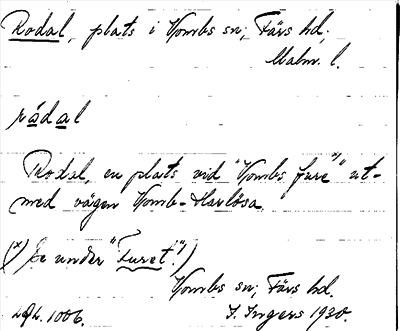 Rodal, plats i Vombs sn; Färs hd.
Malm. l.
rådal
Rodal, en plats vid "Vombs fure"ˣ⁾ ut-
med vägen Vomb-Harlösa.
(ˣ) Se under "Furet".)
Vombs sn; Färs hd.
1006.
I. Ingers 1930.